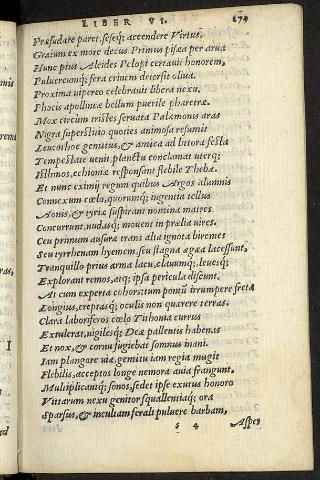 LIBER VI. 279
Præsudare paret, seseq; accendere Virtus.
Graium ex more decus. Primus pisæa per arua
Hunc pius Alcides Pelopi certauit honorem,
Puluereumq; fera crinem detersit oliua.
Proxima uipereo celebratur libera nexu,
Phocis apollineæ bellum puerile pharetræ.
Mox circum tristes seruata Palæmonis aras
Nigra superstitio quoties animosa resumit
Leucothoe gemitus, & amica ad littora festa
Tempestate uenit, planctu conclamat uterq;
Isthmos, echioniæ responsant flebile Thebæ.
Et nunc eximij regum quibus Argos alumnis
Connexum cœlo, quorumq; ingentia tellus
Aonis, & tyriæ suspirant nomina matres
Concurrunt, nudasq; mouent in prælia uires.
Ceu primum ausuræ trans alta ignota biremes
Seu tyrrhenam hyemem, seu stagna ægæa lacessunt,
Tranquillo prius arma lacu, clauumq; leuesq;
Explorant remos, atq; ipsa pericula discunt.
At cum experta cohors: tum pontū irrumpere freta
Longius, ereptasq; oculis non quærere terras.
Clara laboriferos cœlo Tithonia currus
Extulerat, uigilesq; Deæ pallentis habenas
Et nox, & cornu fugiebat somnus inani.
Iam plangore uiæ, gemitu iam regia mugit
Flebilis, acceptos longe nemora auia frangunt,
Multiplicantq; sonos, sedet ipse exutus honoro
Vittarum nexu genitor squallentiaq; ora
Sparsus, & incultam ferali puluere barbam,
s 4 Asper